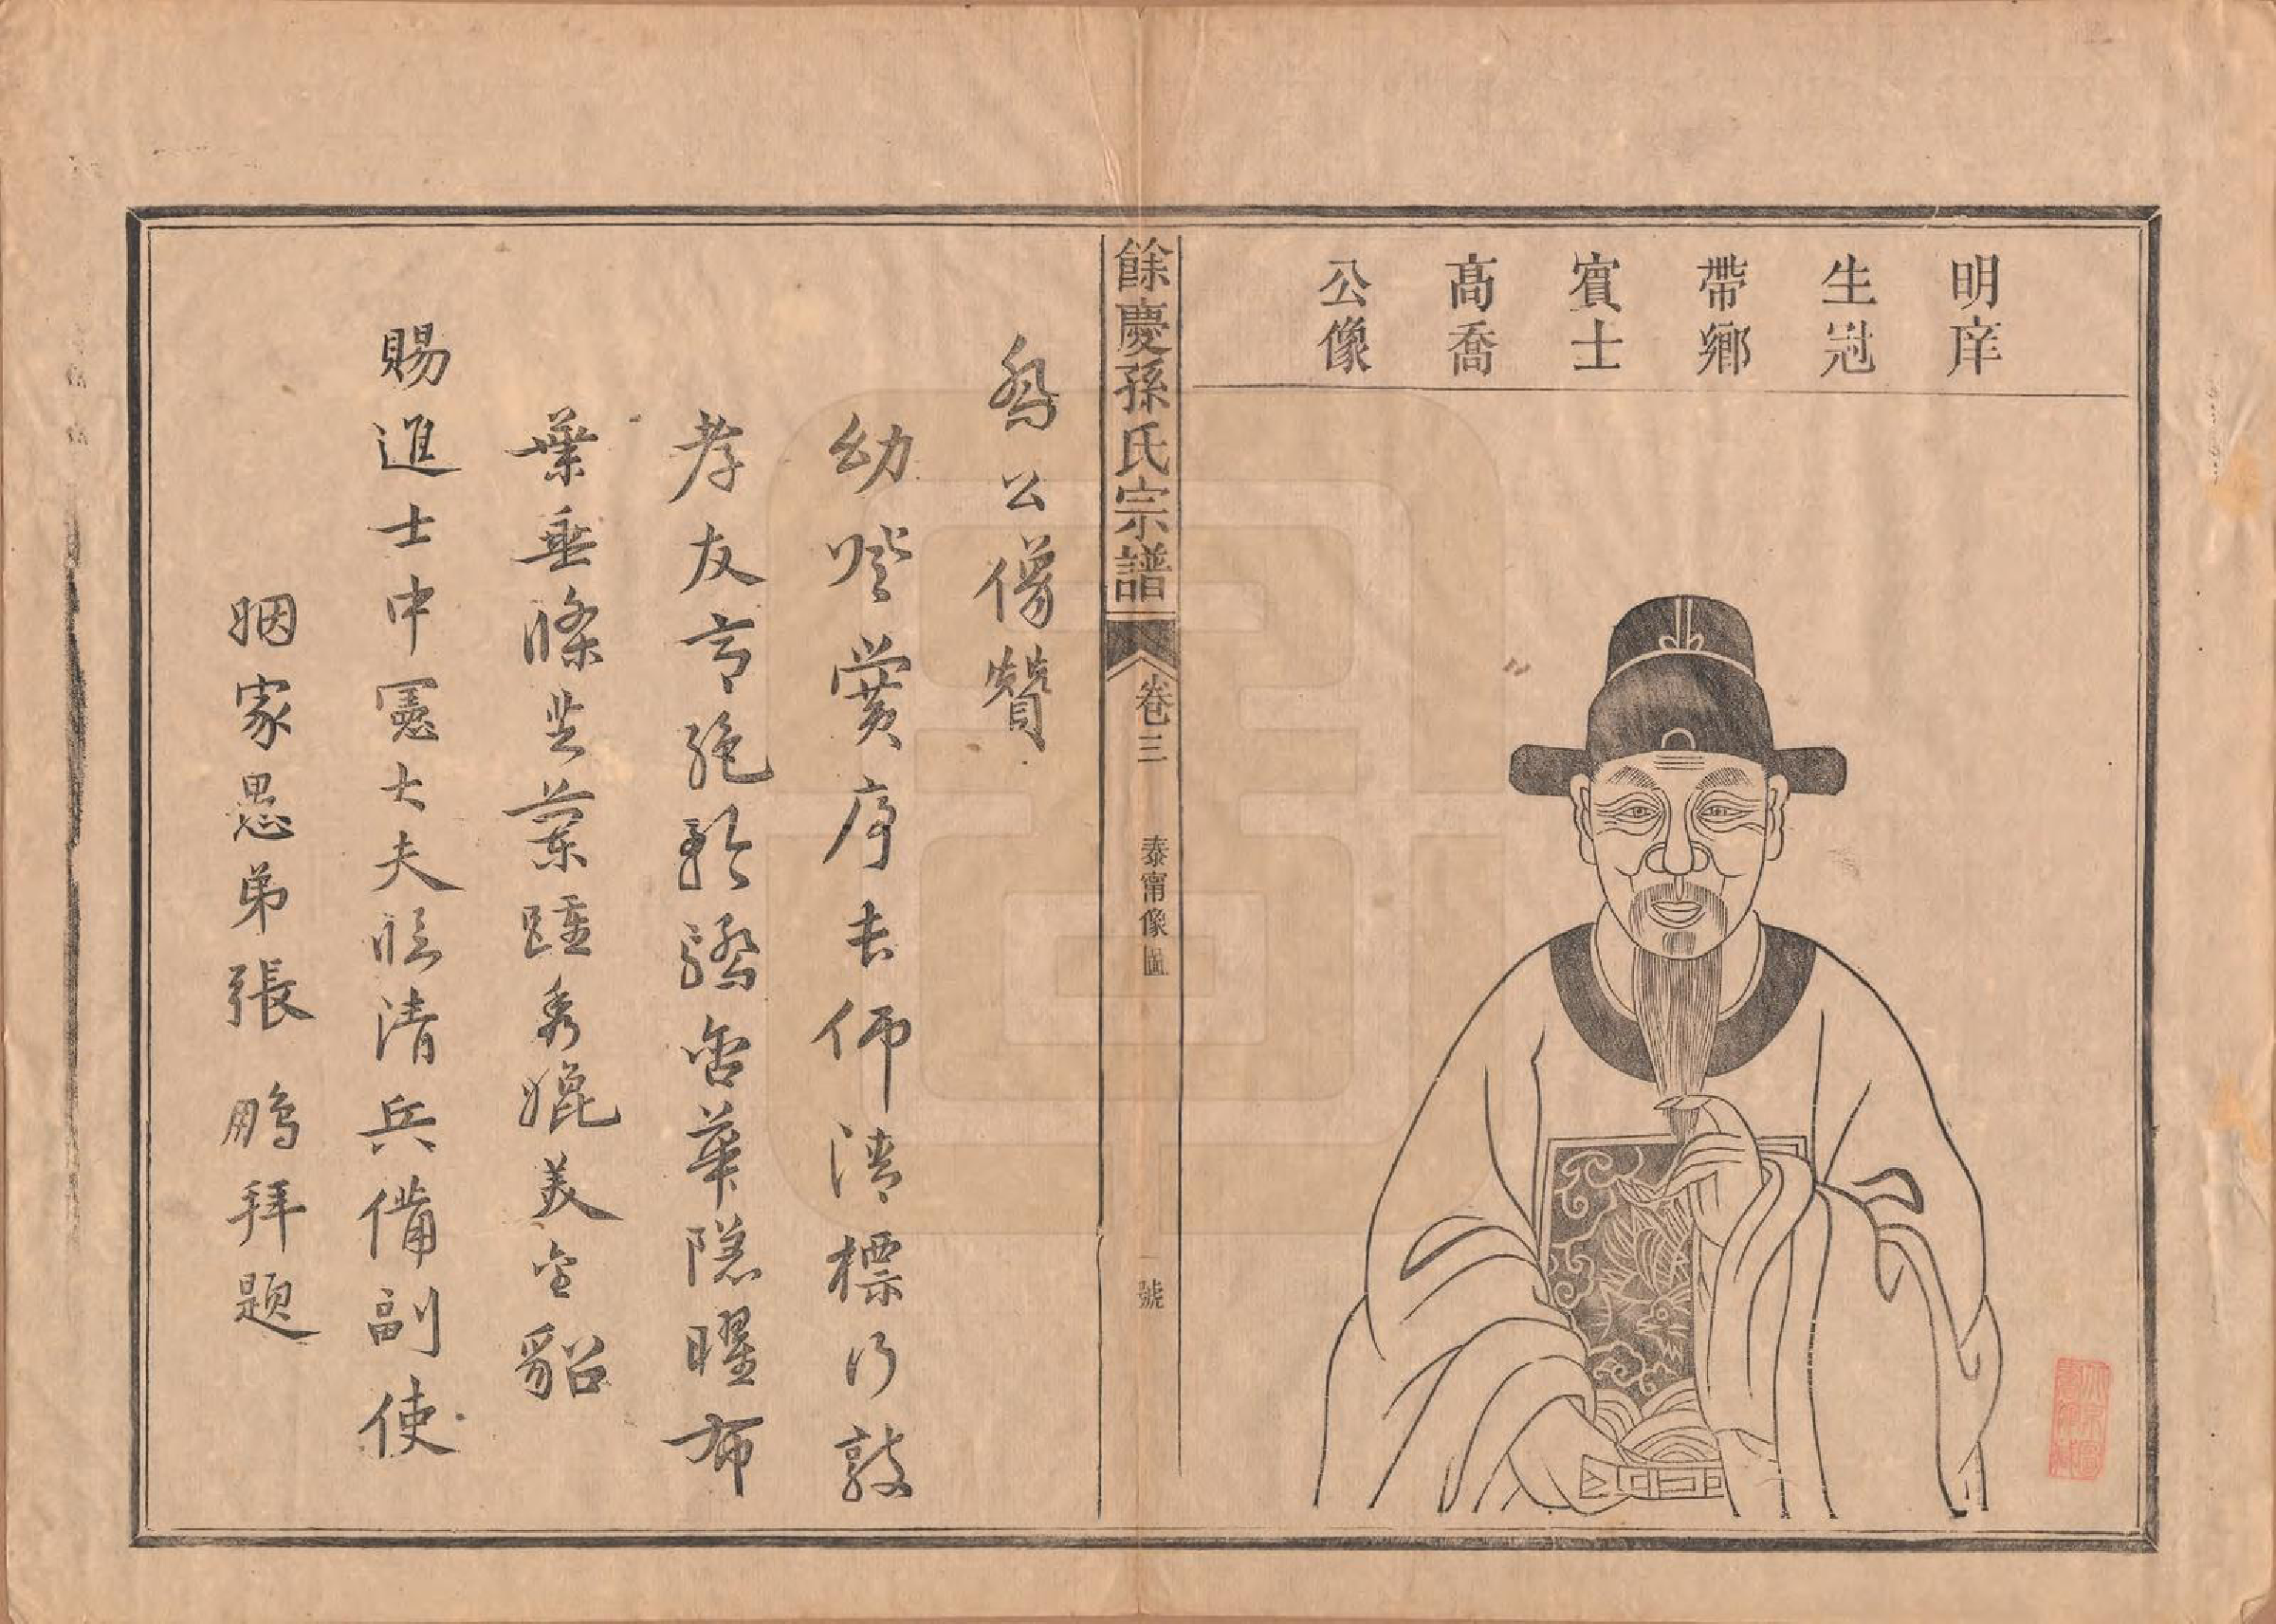 明庠
生冠
帶鄉
賓士
高喬
公像
餘慶孫氏宗譜
卷三
泰甯像圖
一號
喬公像贊
幼登黌序士師清標行敦
孝友言絕矜驕含華隱曜布
葉垂條芝蘭踵秀媲美金貂
賜進士中憲大夫臨清兵備副使
姻家愚弟張鵬拜題